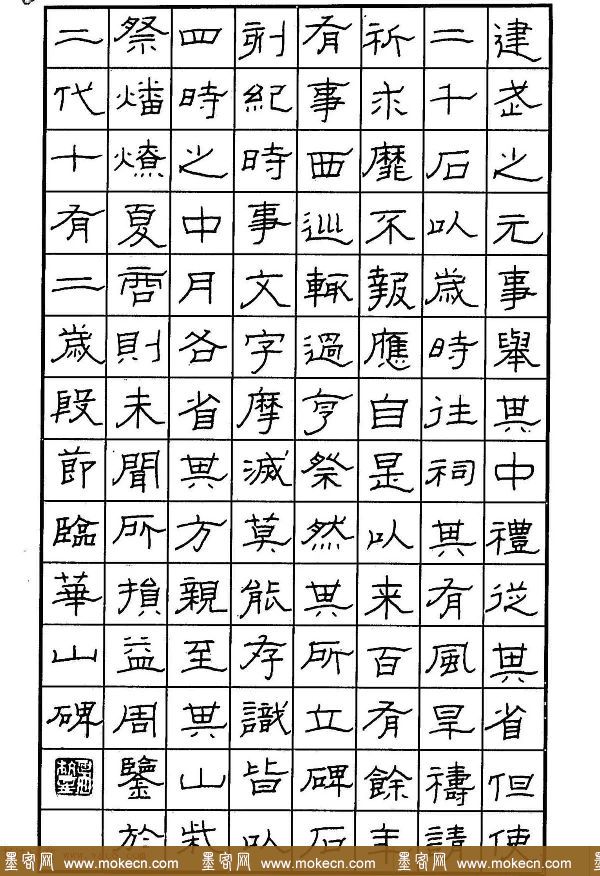 建武之元事舉其中禮從其省但使
二千石以歲時往祠其有風旱禱請
祈求靡不報應自是以来百有餘年
有事西巡輒過亨祭然其所立碑石
刻紀時事文字摩滅莫能存識皆以
四時之中月各省其方親至其山柴
祭燔燎夏商則未聞所損益周鑒於
二代十有二歲段節臨華山碑
墨客网 www.mokecn.com 墨客网 www.mokecn.com 墨客网 www.mokecn.com